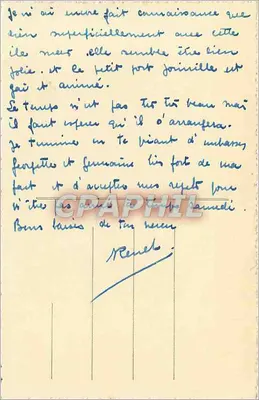 Je n'ai encore fait connaissance que
bien superficiellement avec cette
île mais elle semble être bien
jolie. et ce petit port Joinville est
gai et animé.
Le temps n'est pas très très beau mais
il faut espérer qu'il s'arrangera.
Je termine en te priant d'embrasser
Georgette et Germaine très fort de ma
part et d'accepter mes regrets pour
n'être pas arrivé à temps samedi.
Bons baisers de ton neveu
CPAPHIL